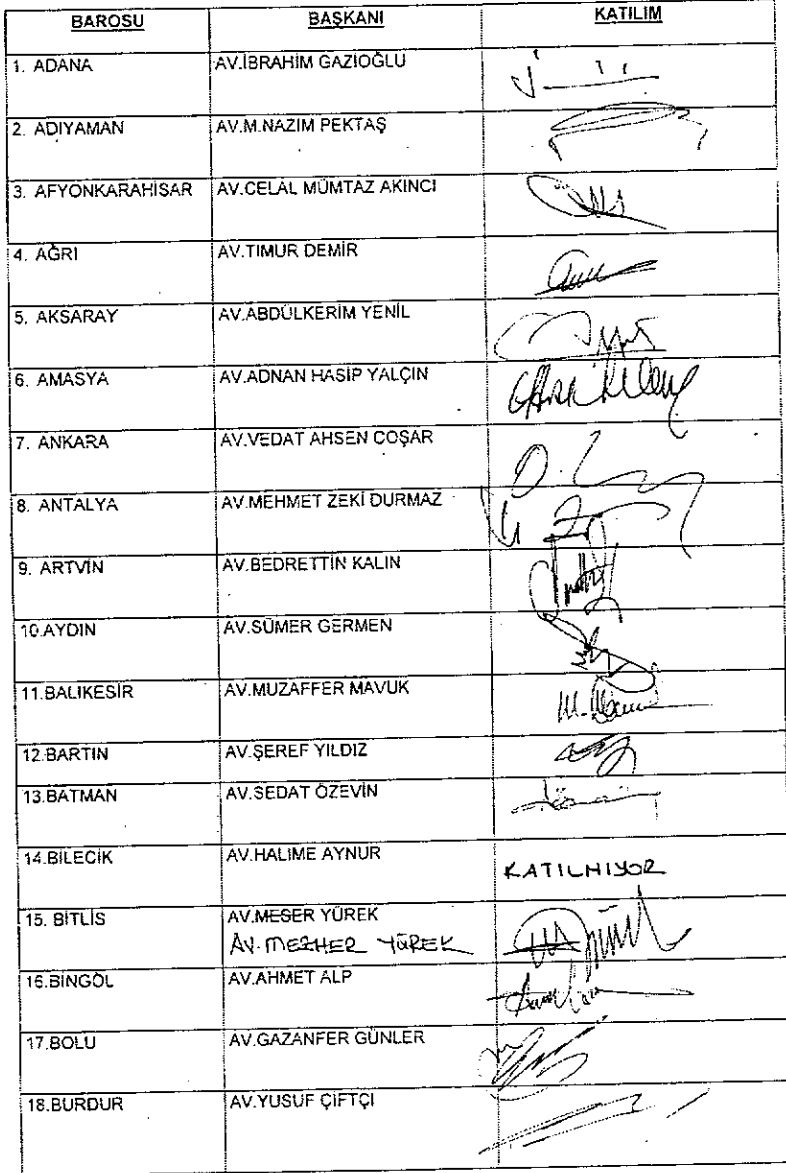 BAROSU BAŞKANI KATILIM
1. ADANA AV.İBRAHİM GAZİOĞLU
2. ADIYAMAN AV.M.NAZIM PEKTAŞ
3. AFYONKARAHİSAR AV.CELAL MÜMTAZ AKINCI
4. AĞRI AV.TIMUR DEMİR
5. AKSARAY AV.ABDÜLKERİM YENİL
6. AMASYA AV.ADNAN HASİP YALÇIN
7. ANKARA AV.VEDAT AHSEN COŞAR
8. ANTALYA AV.MEHMET ZEKİ DURMAZ
9. ARTVİN AV.BEDRETTİN KALIN
10.AYDIN AV.SÜMER GERMEN
11.BALIKESİR AV.MUZAFFER MAVUK
12.BARTIN AV.ŞEREF YILDIZ
13.BATMAN AV.SEDAT ÖZEVİN
14.BİLECİK AV.HALIME AYNUR KATILMIYOR
15. BİTLİS AV.MESER YÜREK
AV. MEZHER YÜREK
16.BİNGÖL AV.AHMET ALP
17.BOLU AV.GAZANFER GÜNLER
18.BURDUR AV.YUSUF ÇİFTÇİ